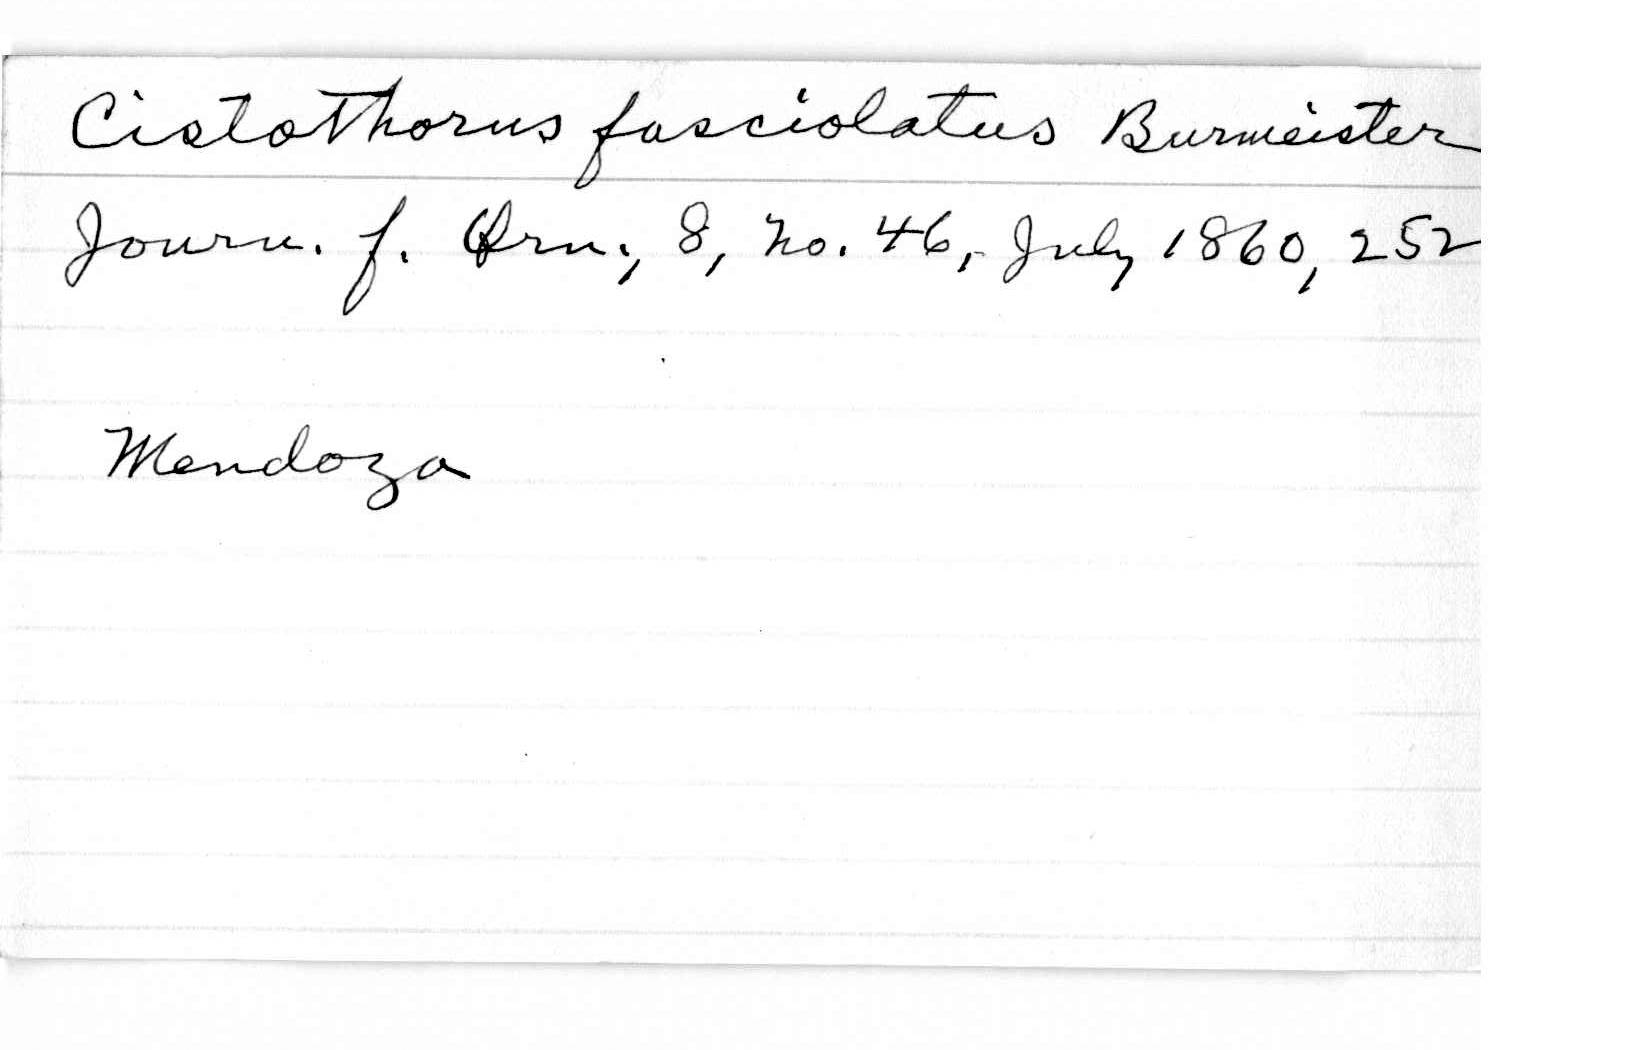 Cistothorus fasciolatus Burmeister
Journ. f. Orn., 8, no. 46, July 1860, 252
Mendoza